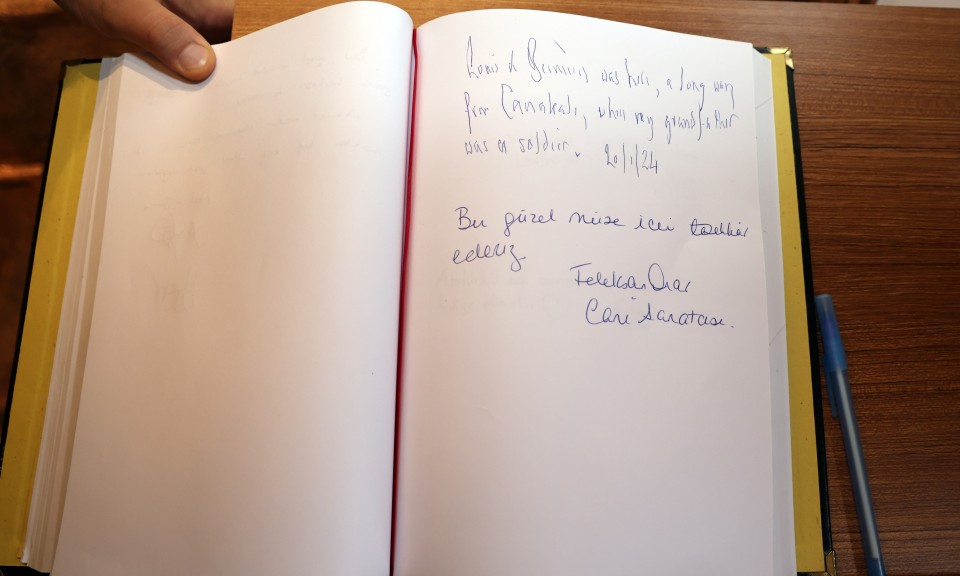 Louis de Bernières was here, a long way
from Canakali, when my grandfather
was a soldier. 20/1/24
Bu güzel müze için teşekkür
ederiz
Feleksan Onar
Cam Sanatçısı.